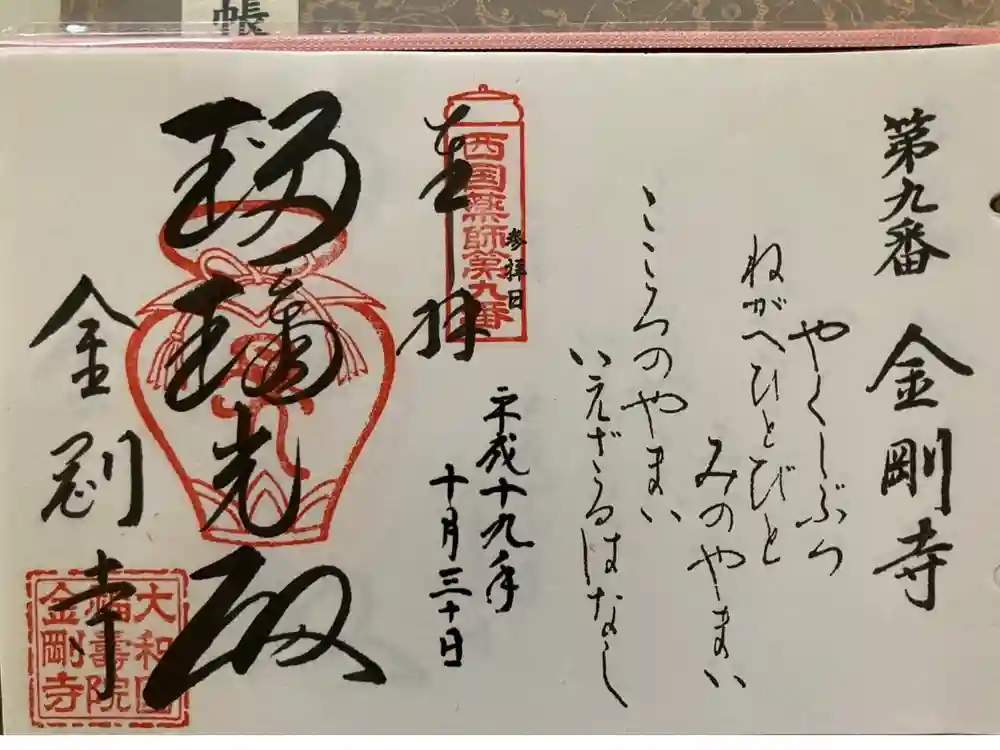 帳
第九番 金剛寺
やくしぶつ
ねがへひとびと
みのやまい
こころのやまい
いえざるはなし
参拝日
西国薬師第九番
平成十九年
十月三十日
奉拝
瑠璃光殿
金剛寺
大和國
福壽院
金剛寺